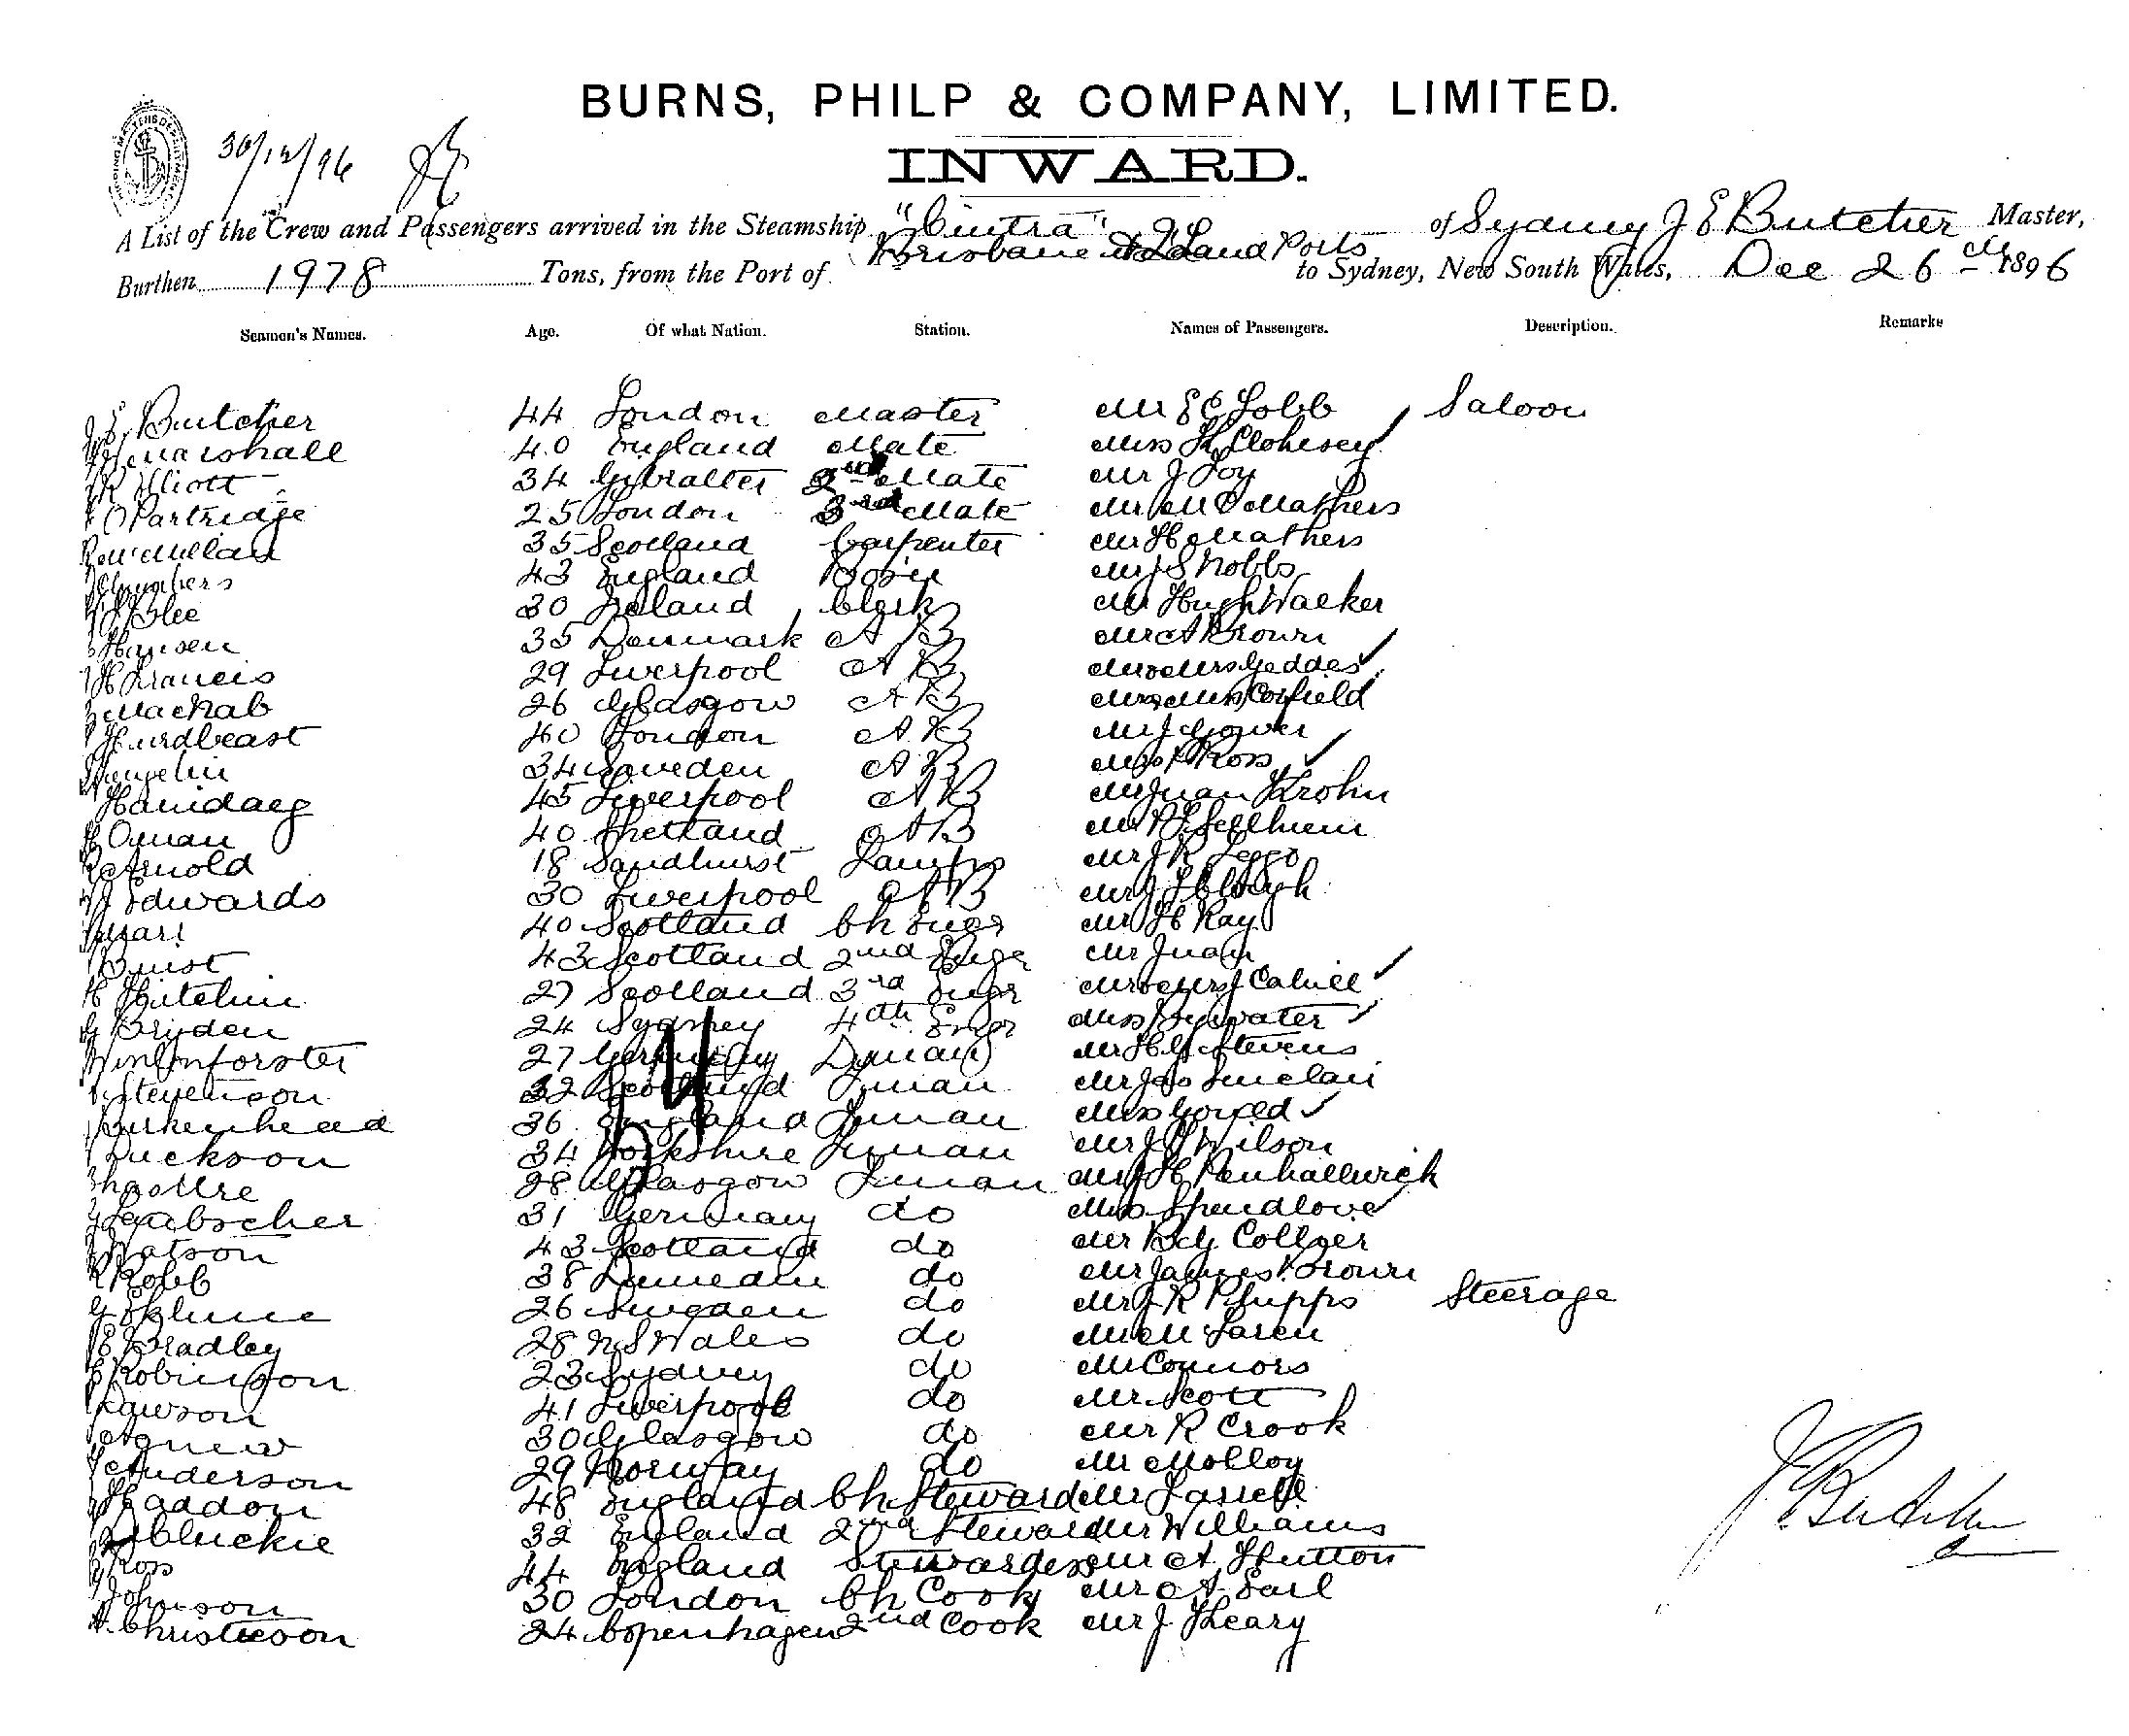 BURNS, PHILP & COMPANY, LIMITED.
30/12/96
INWARD.
A List of the Crew and Passengers arrived in the Steamship "Cintra" of Sydney J E Butcher Master,
Burthen 1978 Tons, from the Port of Brisbane Ports to Sydney, New South Wales, Dec 26th 1896
Seamen's Names. Age. Of what Nation. Station. Names of Passengers. Description. Remarks
J E Butcher 44 London Master Mr E C Lobb Saloon
Marshall 40 England Mate Miss Clohesey
Elliott 34 Gibralter 2nd Mate Mr J Foy
O Partridge 25 London 3rd Mate Mr Mathers
R McMillan 35 Scotland Carpenter Mr H Mathers
Chambers 43 England Bosun Mr J S Nobbs
Slee 30 Ireland Clerk Mr Hugh Walker
Hansen 35 Denmark A B Mr A Brown
H Francis 29 Liverpool A B Mr & Mrs Geddes
MacNab 26 Glasgow A B Corfield
Hurdbeast 40 London A B Mr J Gower
34 Sweden A B Miss Ross
45 Liverpool A B Mr Juan Krohn
Oman 40 Shetland A B Mr Sellheim
Arnold 18 Sandhurst Lamps Mr J R Leggo
Edwards 30 Liverpool A B Mr J Clough
40 Scotland Ch Engr Mr H Ray
Buist 43 Scotland 2nd Engr Mr Juan
Hutchin 27 Scotland 3rd Engr Mr & Mrs J Cahill
Bryden 24 Sydney 4th Engr Miss Bywater
27 Germany Dman Mr H G Stevens
Stevenson 32 Scotland Fman Mr Jas Sinclair
Birkenhead 36 England Fman Miss Gould
Dickson 34 Yorkshire Fman Mr J Wilson
28 Glasgow Fman Mr J H Penhallurick
Laubscher 31 Germany do Miss Spendlove
Watson 43 Scotland do Mr B G Collyer
R Robb 38 Dunedin do Mr James Brown
G Eklune 26 Sweden do Mr J R Phipps Steerage
Bradley 28 N S Wales do McLaren
Robinson 23 Sydney do Mr Connors
Dawson 41 Liverpool do Mr Scott
Agnew 30 Glasgow do Mr R Crook
Anderson 29 Norway do Mr Molloy
Haddon 48 England Ch Steward Mr
McLuckie 32 England 2nd Steward Mr Williams
Ross 44 England Stewardess Mr A Hutton
Johnson 30 London Ch Cook Mr A Earl
Christieson 24 Copenhagen 2nd Cook Mr J Leary
J E Butcher